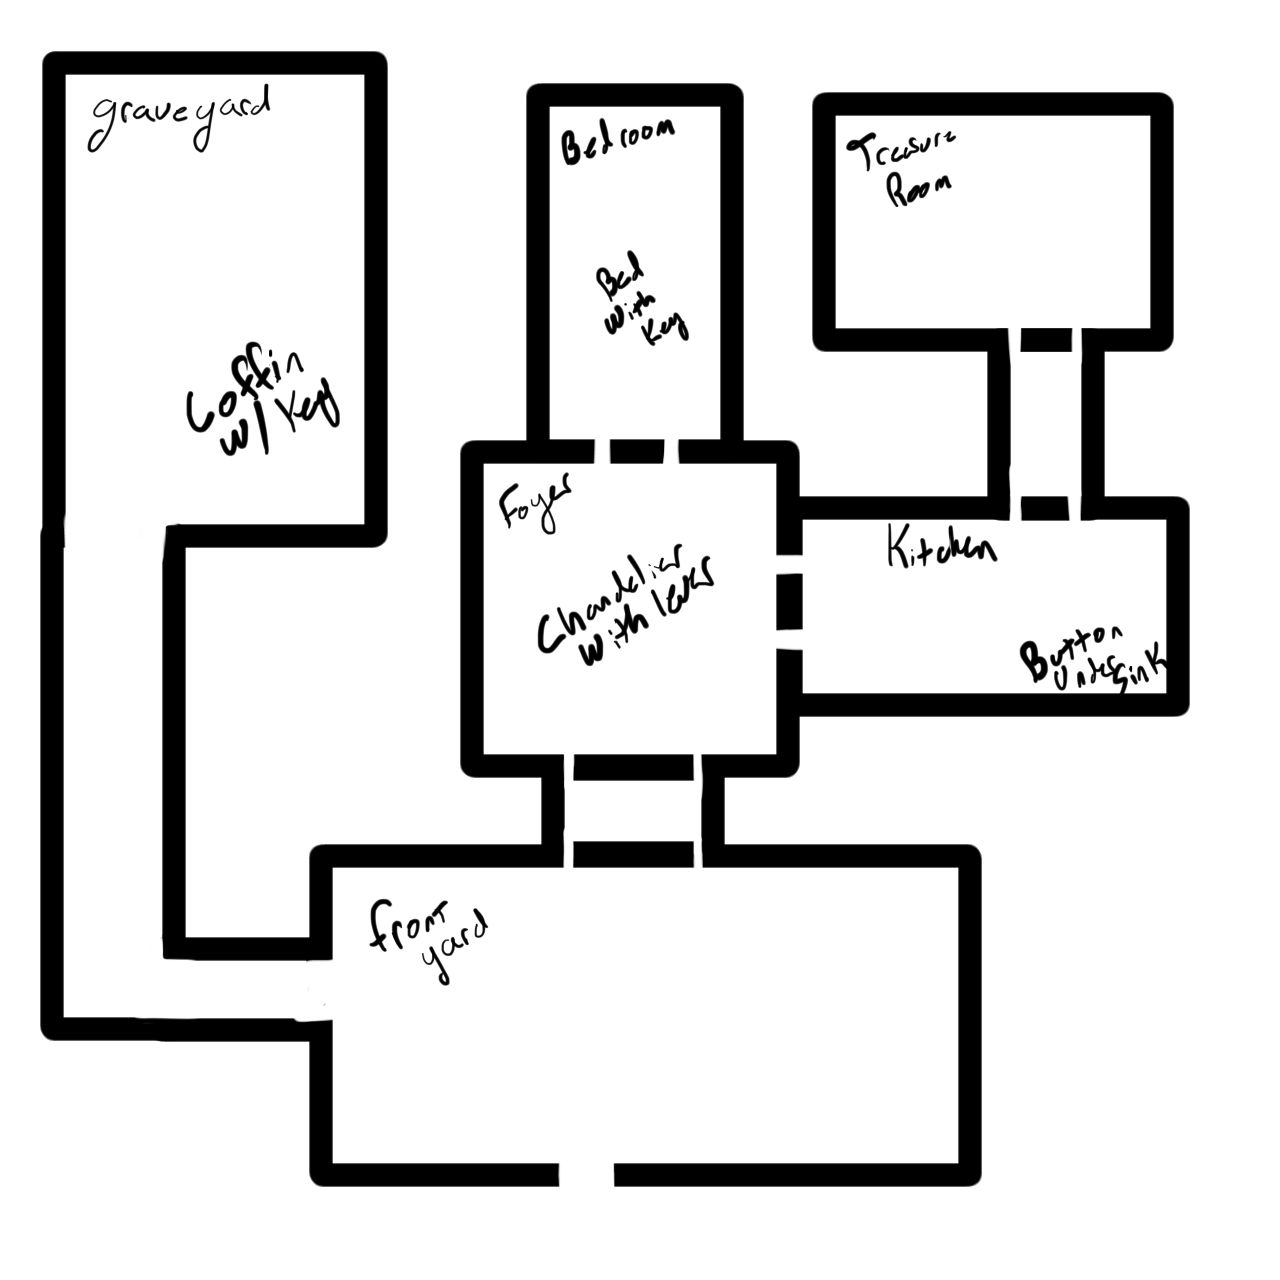 graveyard
Coffin
w/ Key
Bedroom
Bed
With
Key
Treasure
Room
Foyer
Chandelier
With lever
Kitchen
Button
Under Sink
front
yard